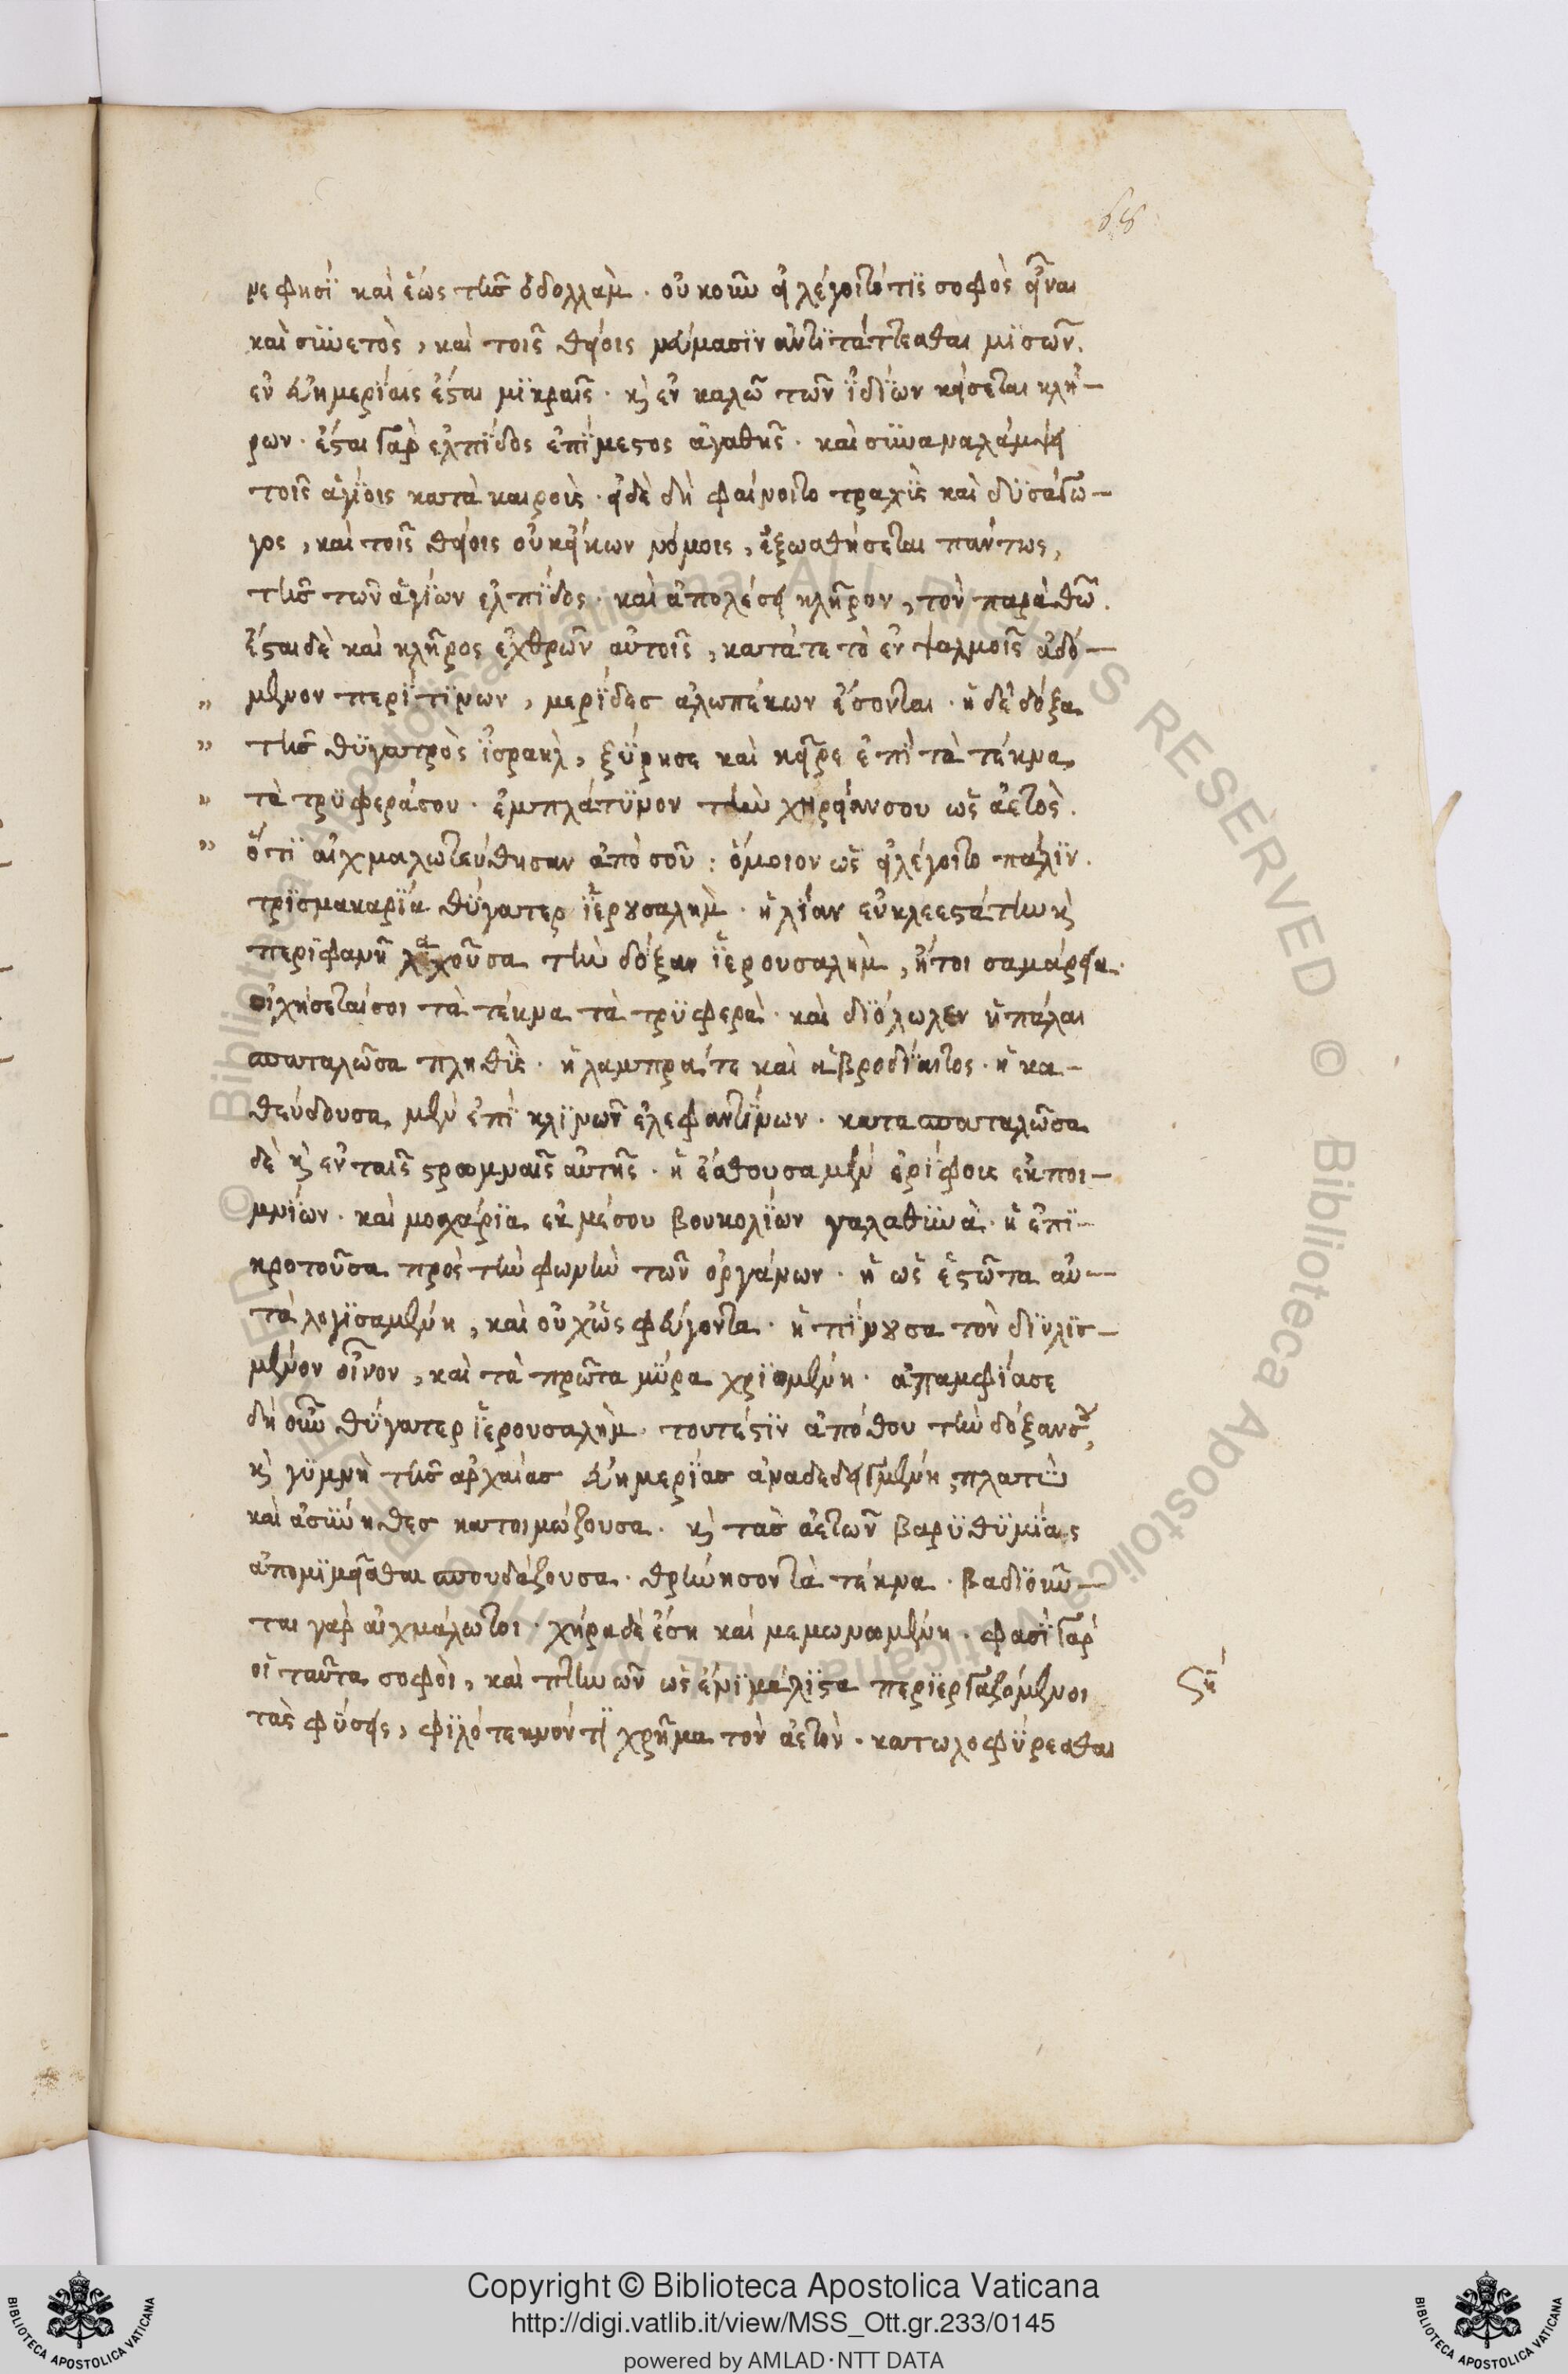 68
νεφησϊ καὶ ἕως τῆς ὀδολλὰμ. οὐκοῦν εἰ λέγοιτό τϊς σοφὸς εἶναι
καὶ συνετὸς, καὶ τοῖς θείοις νεύμασϊν ἀντϊτάττεσθαι μϊσῶν.
ἐν εὐημερΐαις ἔσται μϊκραῖς. κ ἐν καλῶ τῶν ἰδΐων κείσεται κλή-
ρων. ἔσται γὰρ ἐλπΐδος ἐπΐμεστος ἀγαθῆς. καὶ συναναλάμψει
τοῖς ἁγΐοις κατὰ καιροὺς. εἰ δὲ δὴ φαίνοιτο τραχὺς καὶ δυσάγω-
γος, καὶ τοῖς θείοις οὐκ εἴκων νόμοις, ἐξωσθήσεται πάντως,
τῆς τῶν ἁγΐων ἐλπΐδος. καὶ ἀπολέσει κλῆρον, τὸν παρὰ θῶ.
ἔσται δὲ καὶ κλῆρος ἐχθρῶν αὐτοῖς, κατά τε τὸ ἐν ψαλμοῖς ἀδό-
μενον περΐ τϊνων, μερΐδες ἀλωπέκων ἔσονται. ἡ δὲ δόξα
τῆς θυγατρὸς ἰσραὴλ, ξύρησε καὶ κεῖρε ἐπὶ τὰ τέκνα
τὰ τρυφερά σου. ἐμπλάτυνον τὴν χηρείαν σου ὡς ἀετὸς.
ὅτϊ αἰχμαλωτεύθησαν ἀπὸ σοῦ: ὅμοιον ὡς εἰ λέγοιτο πάλϊν.
τρϊσμακαρΐα θύγατερ ἱερουσαλὴμ. ἡ λΐαν εὐκλεεστάτην κ
περϊφανῆ λαχοῦσα τὴν δόξαν ἱερουσαλὴμ, ἤτοι σαμάρεια.
οἰχήσεταί σοι τὰ τέκνα τὰ τρυφερὰ. καὶ διόλωλεν ἡ πάλαι
σπαταλῶσα πληθὺς. ἡ λαμπρά τε καὶ ἁβροδΐαιτος. ἡ κα-
θεύδουσα μὲν ἐπὶ κλϊνῶν ἐλεφαντΐνων. κατασπαταλῶσα
δὲ κ ἐν ταῖς στρωμναῖς αὐτῆς. ἡ ἔσθουσα μὲν ἐρΐφους ἐκ ποι-
μνΐων. καὶ μοσχάρϊα ἐκ μέσου βουκολΐων γαλαθυνὰ. ἡ ἐπϊ-
κροτοῦσα πρὸς τὴν φωνὴν τῶν ὀργάνων. ἡ ὡς ἑστῶτα αὐ-
τὰ λογϊσαμένη, καὶ οὐχ ὡς φεύγοντα. ἡ πΐνουσα τὸν διυλϊσ-
μένον οἶνον, καὶ τὰ πρῶτα μύρα χρϊομένη. ἀπαμφΐασε
δὴ οὖν θύγατερ ἱερουσαλὴμ. τουτέστϊν ἀπόθου τὴν δόξαν σου,
κ γυμνὴ τῆς ἀρχαίας εὐημερΐας ἀναδεδειγμένη, πλατὺ
καὶ ἀσύνηθες κατοιμώζουσα. κ τὰς ἀετῶν βαρυθυμΐας
ἀπομϊμεῖσθαι σπουδάζουσα. θρήνησον τὰ τέκνα. βαδιοῦν-
ται γὰρ αἰχμάλωτοι. χήρα δὲ ἔση καὶ μεμονωμένη. φασὶ γὰρ
οἱ ταῦτα σοφοὶ, καὶ πτηνῶν ὡς ἔνϊ μάλϊστα περϊεργαζόμενοι
τὰς φύσεις, φϊλότεκνόν τϊ χρῆμα τὸν ἀετὸν. κατωλοφύρεσθαι
Copyright © Biblioteca Apostolica Vaticana
http://digi.vatlib.it/view/MSS_Ott.gr.233/0145
powered by AMLAD·NTT DATA